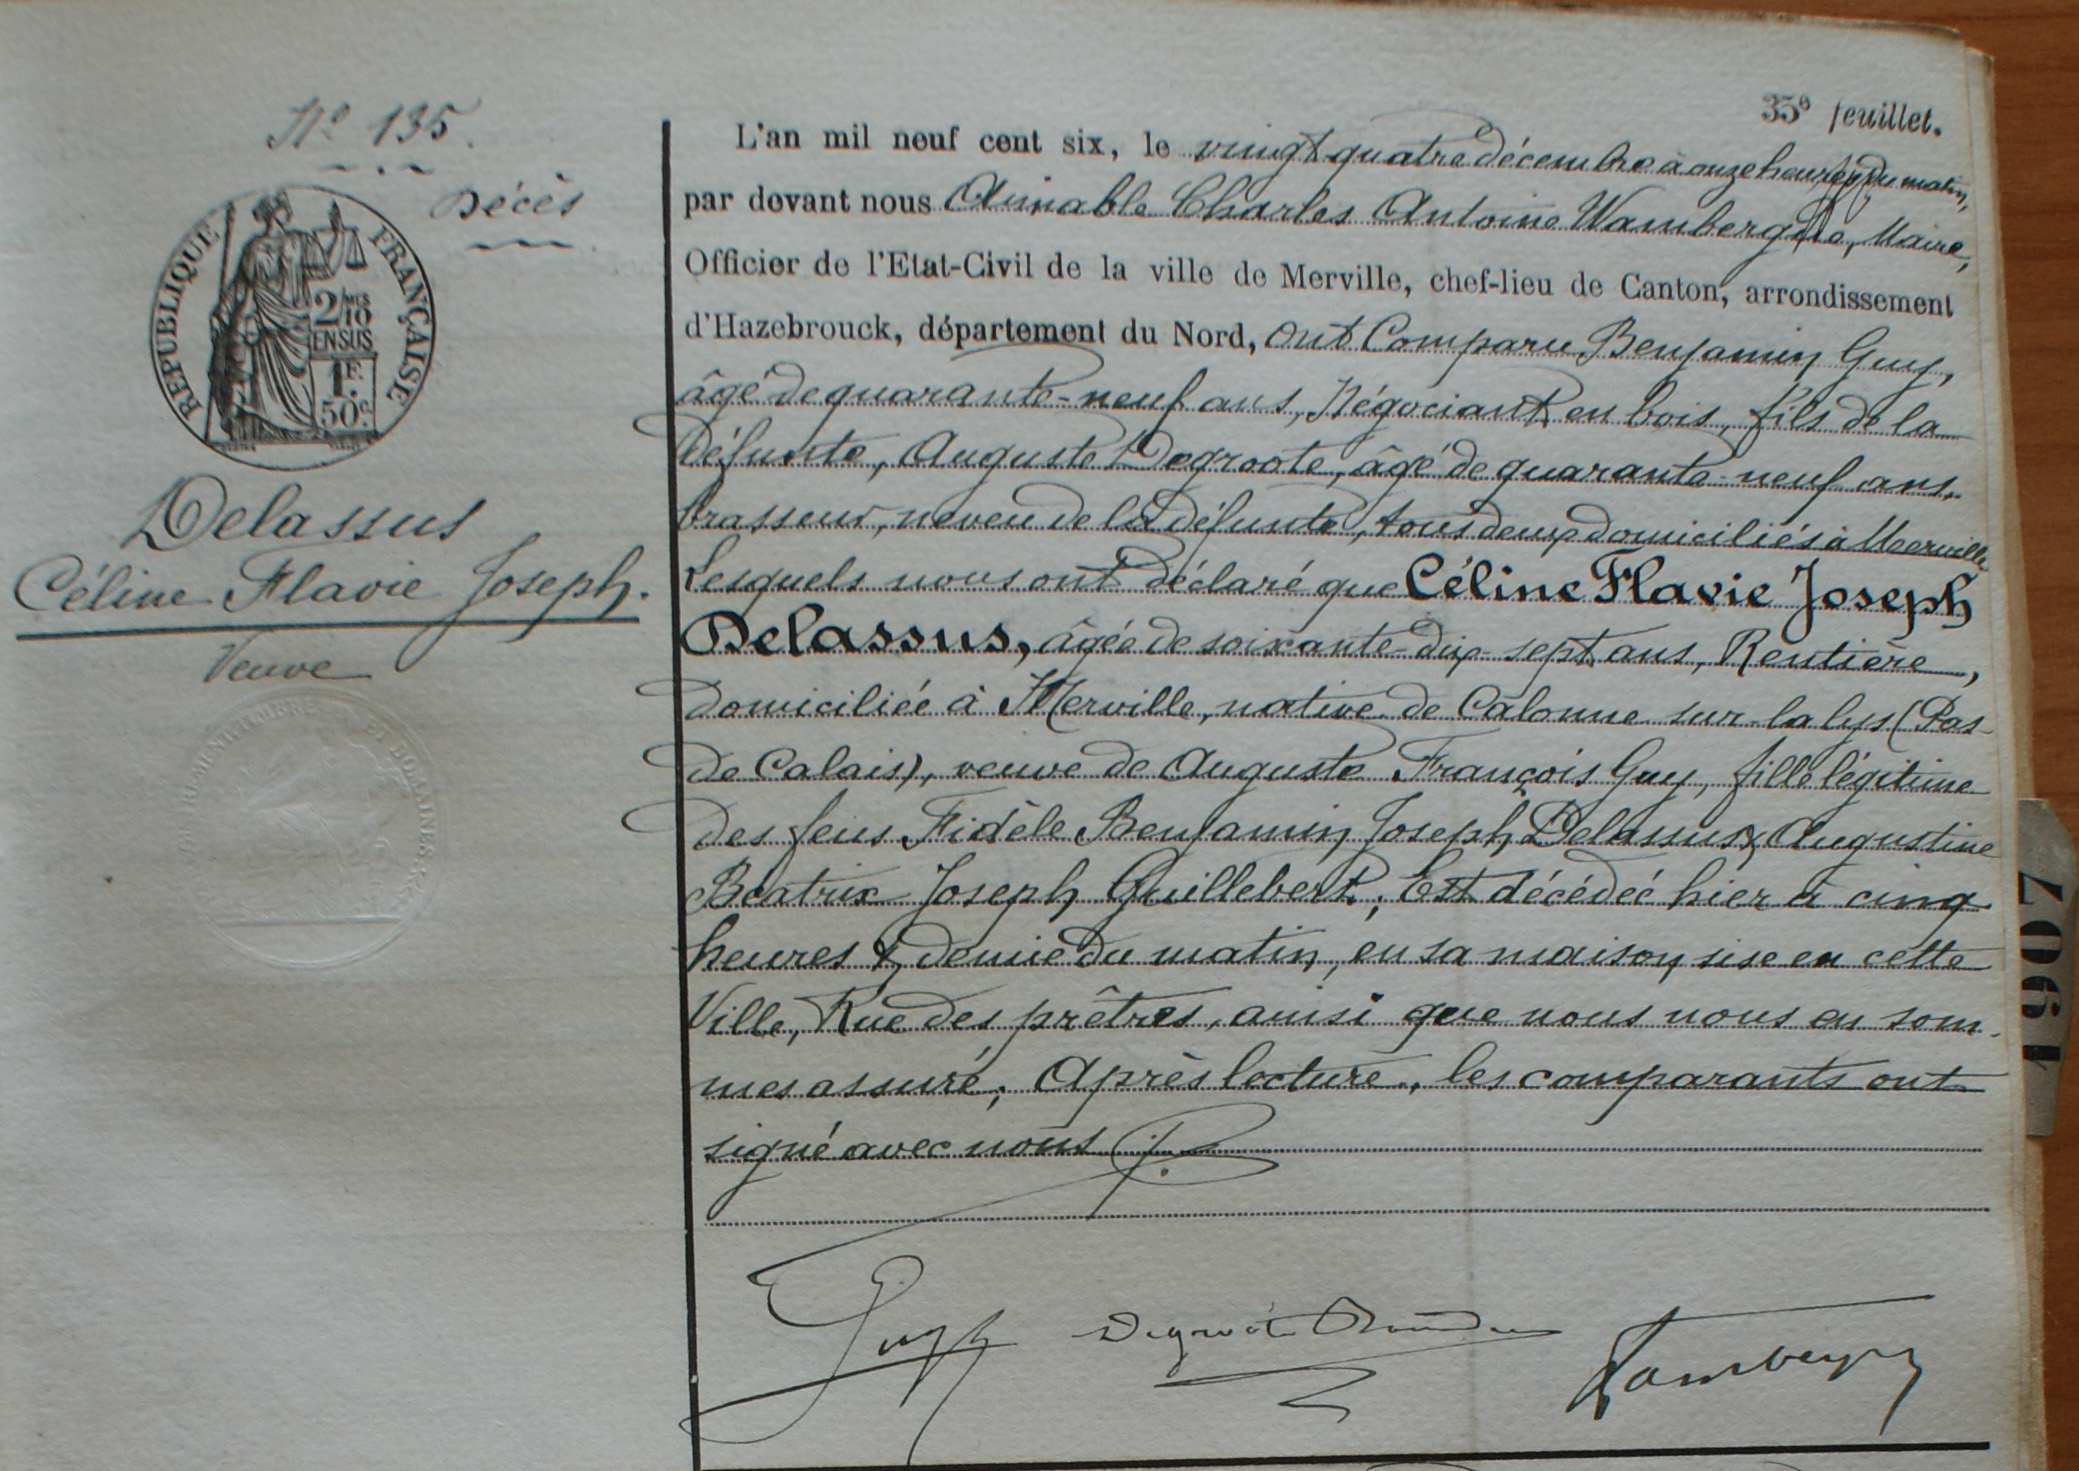 35e feuillet.
No 135.
Décès
RÉPUBLIQUE FRANÇAISE
2/10 MES
EN SUS
1F.
50c.
Delassus
Céline Flavie Joseph.
Veuve
L'an mil neuf cent six, le vingt quatre décembre à onze heures du matin,
par devant nous Aimable Charles Antoine Wambergue, Maire,
Officier de l'Etat-Civil de la ville de Merville, chef-lieu de Canton, arrondissement
d'Hazebrouck, département du Nord, ont Comparu Benjamin Guy,
âgé de quarante-neuf ans, Négociant en bois, fils de la
défunte, Auguste Degroote, âgé de quarante-neuf ans,
brasseur, neveu de la défunte, tous deux domiciliés à Merville
Lesquels nous ont déclaré que Céline Flavie Joseph
Delassus, âgée de soixante-dix-sept ans, Rentière,
domiciliée à Merville, native de Calonne sur la lys (Pas
de Calais), veuve de Auguste François Guy, fille légitime
des feus Fidèle Benjamin Joseph Delassus & Augustine
Béatrix Joseph Guillebert; Est décédée hier à cinq
heures & demie du matin, en sa maison sise en cette
Ville, Rue des prêtres, ainsi que nous nous en som-
mes assuré; Après lecture, les comparants ont
signé avec nous
Guy
Wambergue
1907